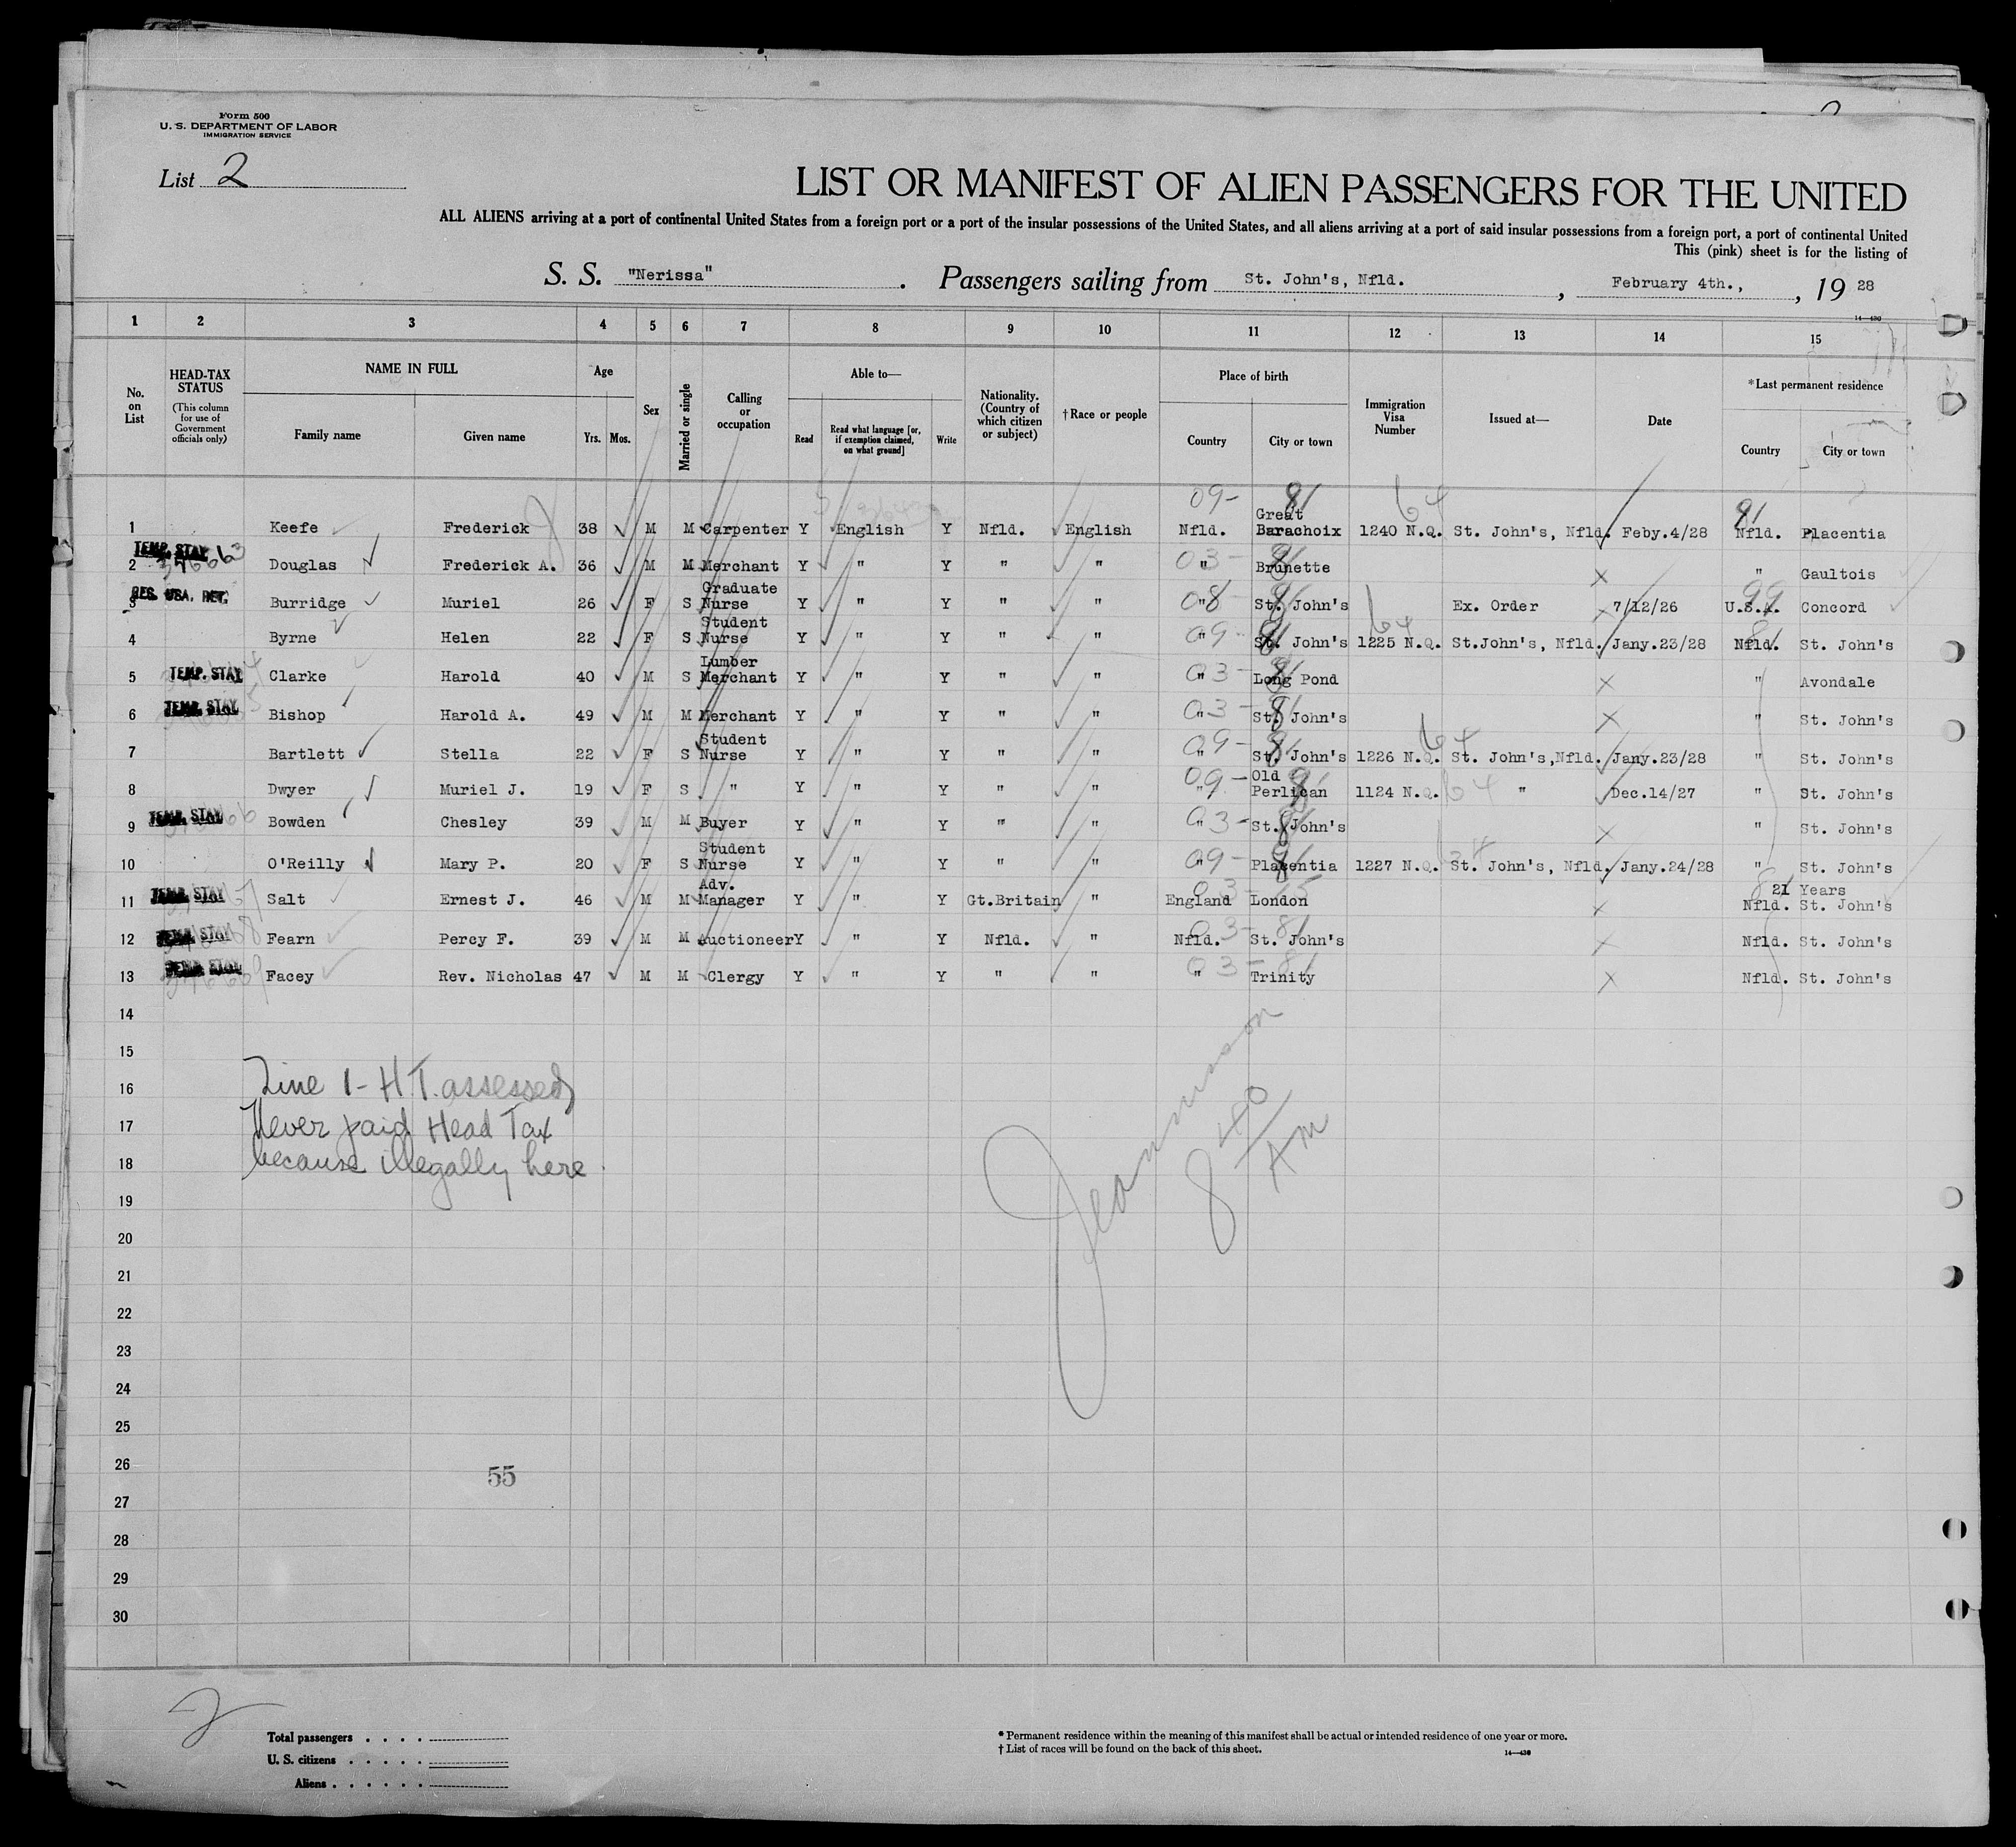 Form 500
U. S. DEPARTMENT OF LABOR
IMMIGRATION SERVICE
List 2
LIST OR MANIFEST OF ALIEN PASSENGERS FOR THE UNITED
ALL ALIENS arriving at a port of continental United States from a foreign port or a port of the insular possessions of the United States, and all aliens arriving at a port of said insular possessions from a foreign port, a port of continental United
This (pink) sheet is for the listing of
S. S. "Nerissa". Passengers sailing from St. John's, Nfld., February 4th., , 19 28
14—430
1 2 3 4 5 6 7 8 9 10 11 12 13 14 15
No. on List
HEAD-TAX STATUS (This column for use of Government officials only)
NAME IN FULL
Family name Given name
Age
Yrs. Mos.
Sex
Married or single
Calling or occupation
Able to—
Read Read what language [or, if exemption claimed, on what ground] Write
Nationality. (Country of which citizen or subject)
†Race or people
Place of birth
Country City or town
Immigration Visa Number
Issued at—
Date
*Last permanent residence
Country City or town
09- 81 64 81
1 Keefe Frederick 38 M M Carpenter Y English Y Nfld. English Nfld. Great Barachoix 1240 N.Q. St. John's, Nfld. Feby.4/28 Nfld. Placentia
TEMP. STAY
2 Douglas Frederick A. 36 M M Merchant Y " Y " " " 03- Brunette X " Gaultois
RES. USA. RET.
3 Burridge Muriel 26 F S Graduate Nurse Y " Y " " " 08 St. John's Ex. Order 7/12/26 U.S.A. 99 Concord
4 Byrne Helen 22 F S Student Nurse Y " Y " " 09- 81 St. John's 1225 N.Q. 64 St.John's, Nfld. Jany.23/28 Nfld. 81 St. John's
5 TEMP. STAY Clarke Harold 40 M S Lumber Merchant Y " Y " " " 03- 81 Long Pond X " Avondale
6 TEMP. STAY Bishop Harold A. 49 M M Merchant Y " Y " " " 03- 81 St. John's X " St. John's
7 Bartlett Stella 22 F S Student Nurse Y " Y " " " 09- 81 St. John's 1226 N.Q. 64 St. John's,Nfld. Jany.23/28 " St. John's
8 Dwyer Muriel J. 19 F S " Y " Y " " " 09- Old Perlican 1124 N.Q. 64 " Dec.14/27 " St. John's
9 TEMP. STAY Bowden Chesley 39 M M Buyer Y " Y " " " 03- 81 St. John's X " St. John's
10 O'Reilly Mary P. 20 F S Student Nurse Y " Y " " " 09- 81 Placentia 1227 N.Q. 64 St. John's, Nfld. Jany.24/28 " St. John's
11 TEMP. STAY Salt Ernest J. 46 M M Adv. Manager Y " Y Gt.Britain " England 03-15 London X 21 Years Nfld. St. John's
12 TEMP. STAY Fearn Percy F. 39 M M Auctioneer Y " Y Nfld. " Nfld. 03-81 St. John's X Nfld. St. John's
13 TEMP. STAY Facey Rev. Nicholas 47 M M Clergy Y " Y " " " 03-81 Trinity X Nfld. St. John's
14
15
16 Line 1- H.T. assessed
17 Never paid Head Tax
18 because illegally here.
8 40 AM
19
20
21
22
23
24
25
26
55
27
28
29
30
2
Total passengers
U. S. citizens
Aliens
* Permanent residence within the meaning of this manifest shall be actual or intended residence of one year or more.
† List of races will be found on the back of this sheet.
14—430